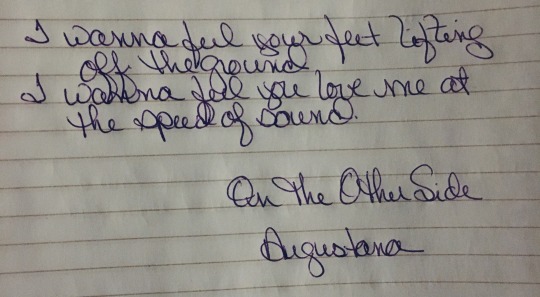 I wanna feel your feet lifting
off the ground
I wanna feel you love me at
the speed of sound.
On The Other Side
Augustana